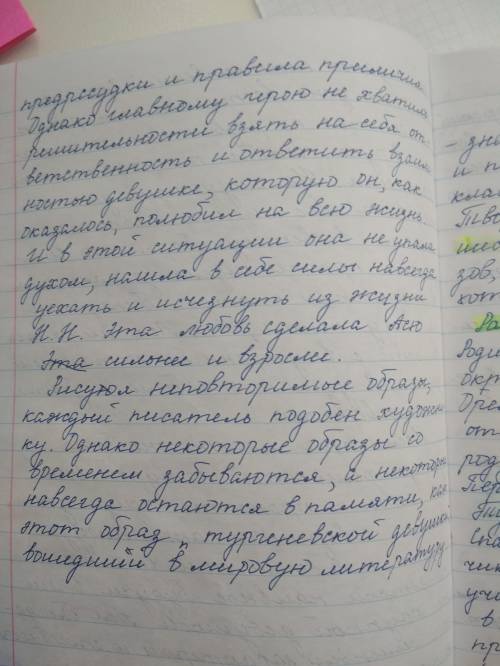 предрассудки и правила приличия.
Однако главному герою не хватило
решительности взять на себя от
ветственность и ответить взаим
ностью девушке, которую он, как
оказалось, полюбил на всю жизнь.
И в этой ситуации она не упала
духом, нашла в себе силы навсегда
уехать и исчезнуть из жизни
Н.Н. Эта любовь сделала Асю
Эта сильнее и взрослее.
Рисуя неповторимые образы,
каждый писатель подобен художни
ку. Однако некоторые образы со
временем забываются, а некоторые
навсегда остаются в памяти, как
этот образ, тургеневской девушки
вошедший в мировую литературу